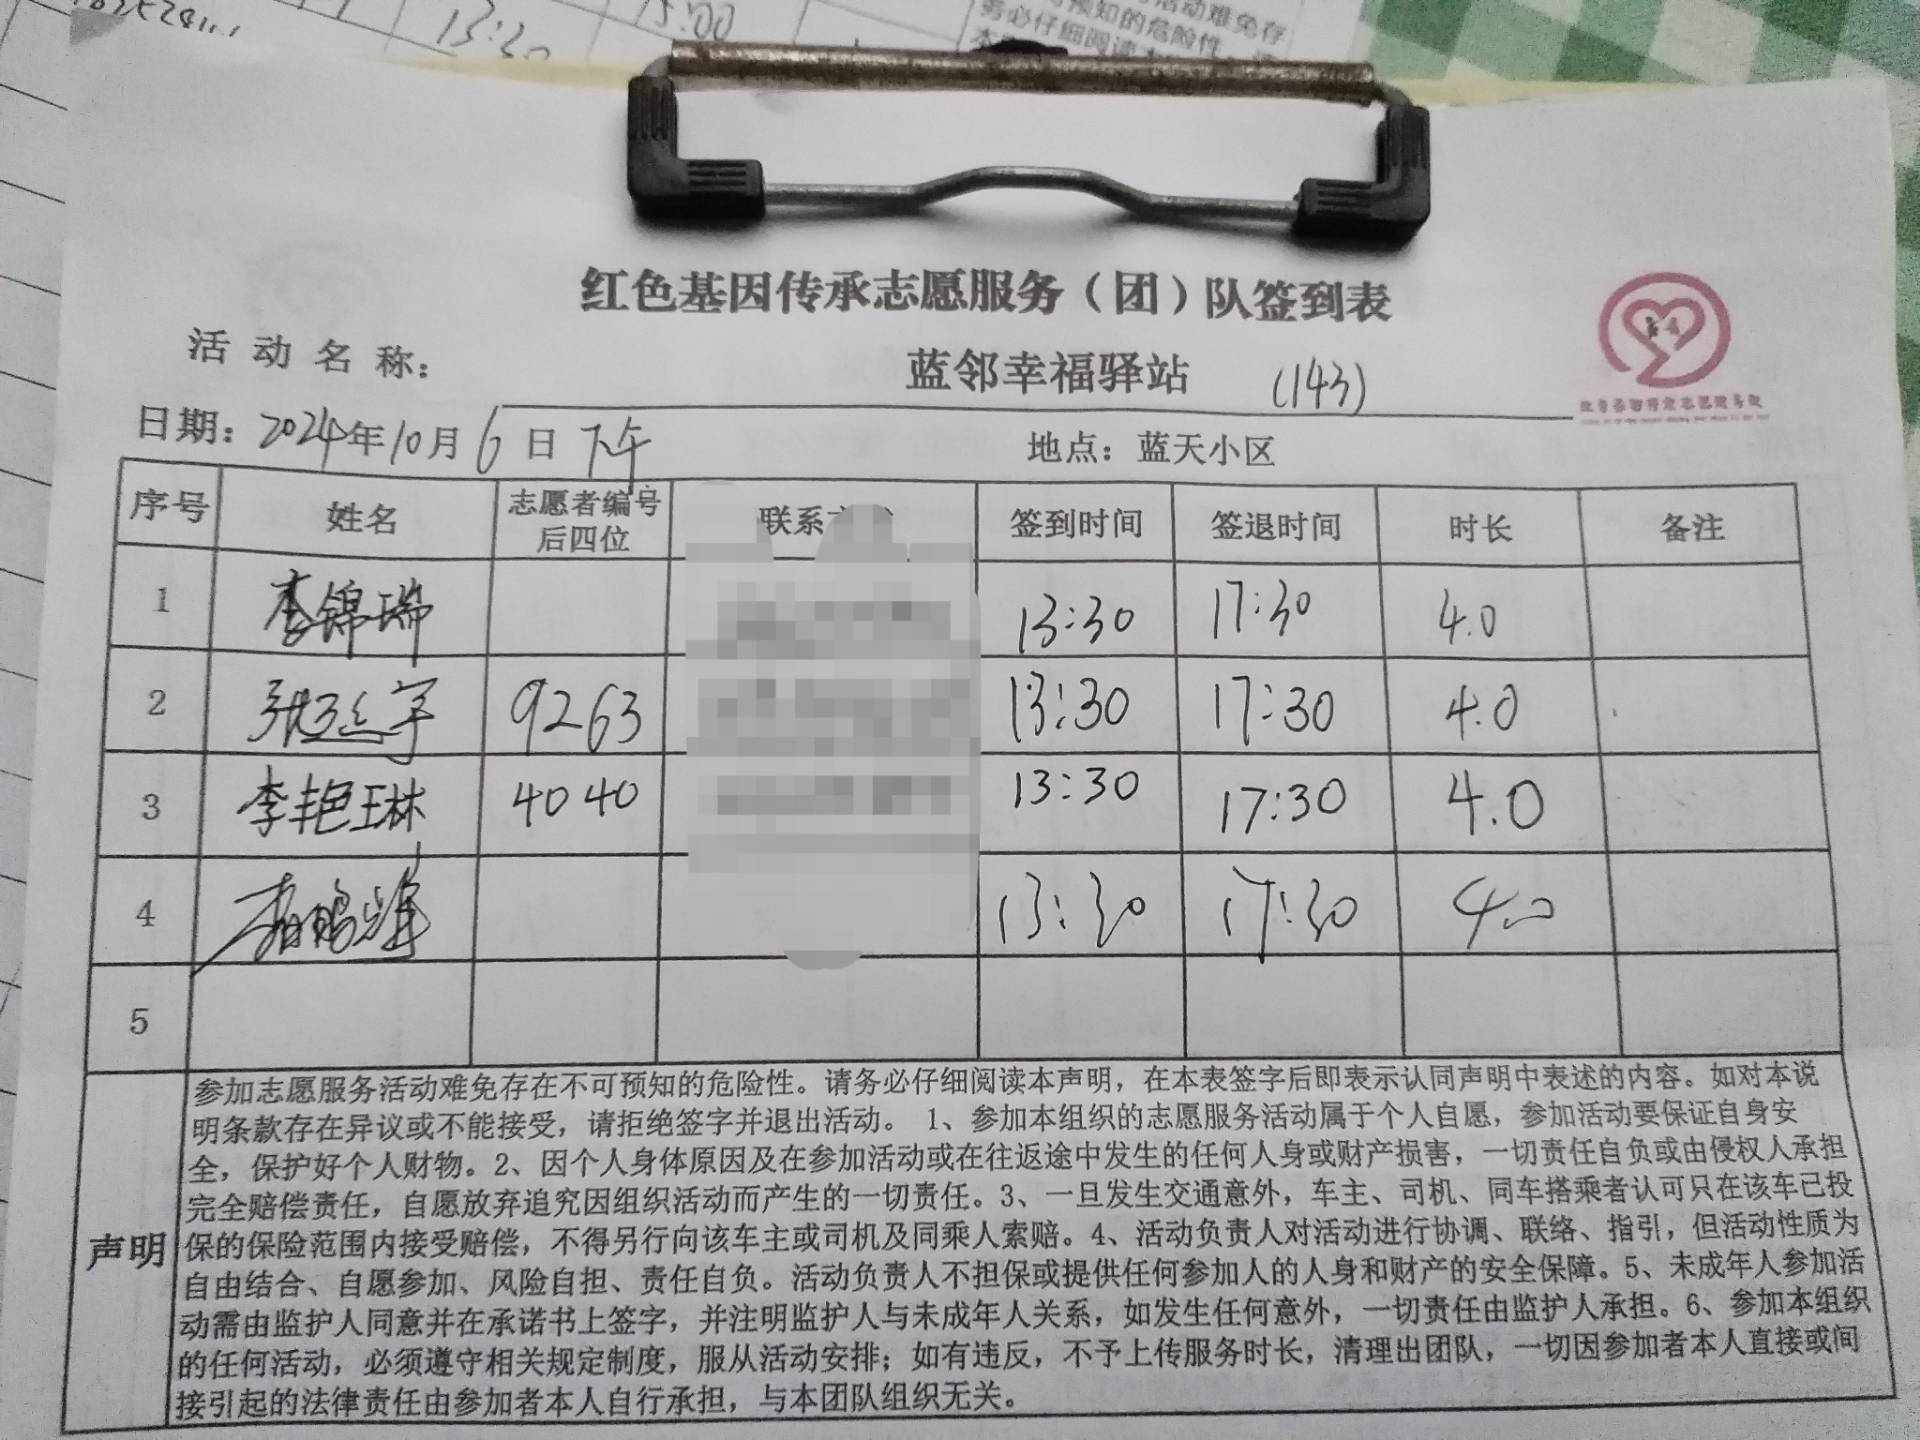 13:30 15:00
红色基因传承志愿服务（团）队签到表
活动名称： 蓝邻幸福驿站 (143)
日期：2024年10月6日下午 地点：蓝天小区
序号 姓名 志愿者编号后四位 联系 签到时间 签退时间 时长 备注
1 李锦瑞 13:30 17:30 4.0
2 张 宇 9263 13:30 17:30 4.0
3 李艳琳 4040 13:30 17:30 4.0
4 13:30 17:30 4.0
5
声明
参加志愿服务活动难免存在不可预知的危险性。请务必仔细阅读本声明，在本表签字后即表示认同声明中表述的内容。如对本说
明条款存在异议或不能接受，请拒绝签字并退出活动。1、参加本组织的志愿服务活动属于个人自愿，参加活动要保证自身安
全，保护好个人财物。2、因个人身体原因及在参加活动或在往返途中发生的任何人身或财产损害，一切责任自负或由侵权人承担
完全赔偿责任，自愿放弃追究因组织活动而产生的一切责任。3、一旦发生交通意外，车主、司机、同车搭乘者认可只在该车已投
保的保险范围内接受赔偿，不得另行向该车主或司机及同乘人索赔。4、活动负责人对活动进行协调、联络、指引，但活动性质为
自由结合、自愿参加、风险自担、责任自负。活动负责人不担保或提供任何参加人的人身和财产的安全保障。5、未成年人参加活
动需由监护人同意并在承诺书上签字，并注明监护人与未成年人关系，如发生任何意外，一切责任由监护人承担。6、参加本组织
的任何活动，必须遵守相关规定制度，服从活动安排；如有违反，不予上传服务时长，清理出团队，一切因参加者本人直接或间
接引起的法律责任由参加者本人自行承担，与本团队组织无关。